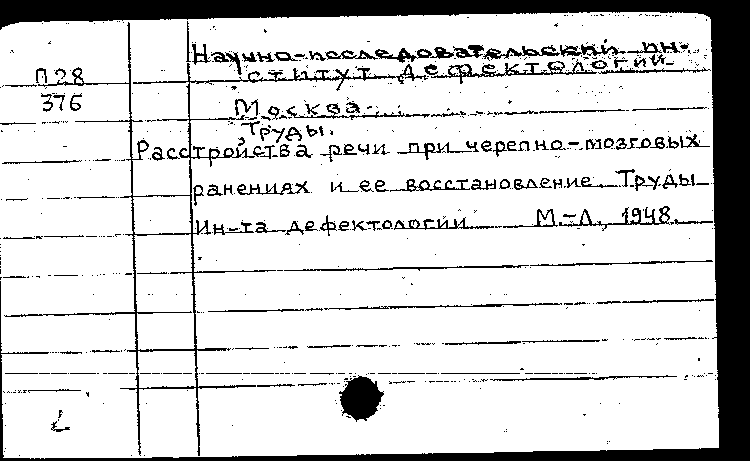 Научно-исследовательский ин-
П28 ститут дефектологии
376 Москва.
Труды.
Расстройства речи при черепно-мозговых
ранениях и ее восстановление. Труды
Ин-та дефектологии М.-Л., 1948.